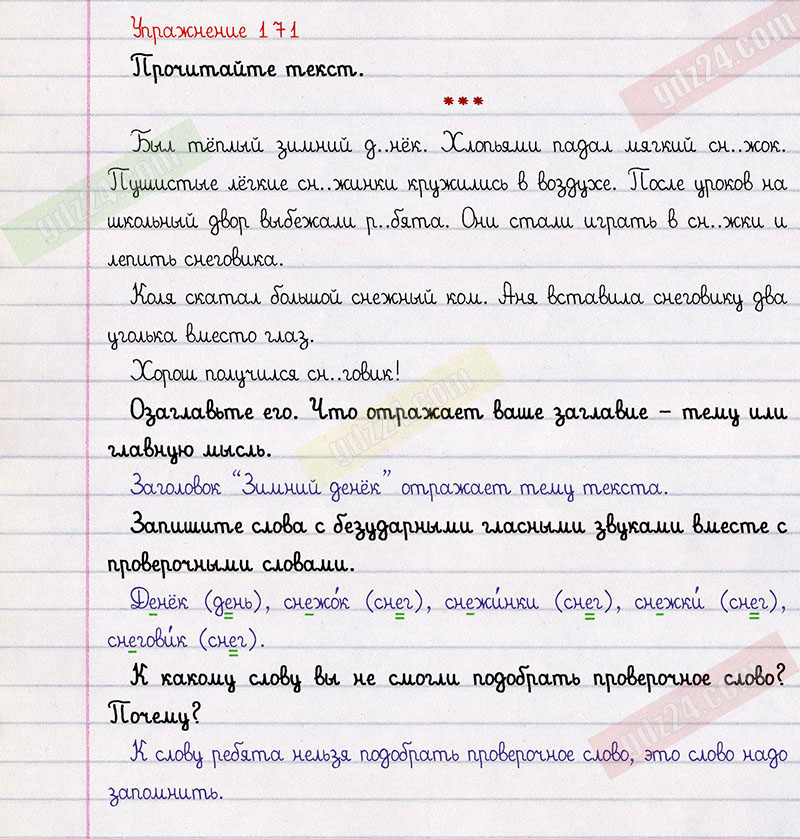 Упражнение 171
Прочитайте текст.
***
Был тёплый зимний д..нёк. Хлопьями падал мягкий сн..жок.
Пушистые лёгкие сн..жинки кружились в воздухе. После уроков на
школьный двор выбежали р..бята. Они стали играть в сн..жки и
лепить снеговика.
Коля скатал большой снежный ком. Аня вставила снеговику два
уголька вместо глаз.
Хорош получился сн..говик!
Озаглавьте его. Что отражает ваше заглавие – тему или
главную мысль.
Заголовок “Зимний денёк” отражает тему текста.
Запишите слова с безударными гласными звуками вместе с
проверочными словами.
Денёк (день), снежо́к (снег), снежи́нки (снег), снежки́ (снег),
снегови́к (снег).
К какому слову вы не смогли подобрать проверочное слово?
Почему?
К слову ребята нельзя подобрать проверочное слово, это слово надо
запомнить.
gdz24.com
gdz24.com
gdz24.com
gdz24.com